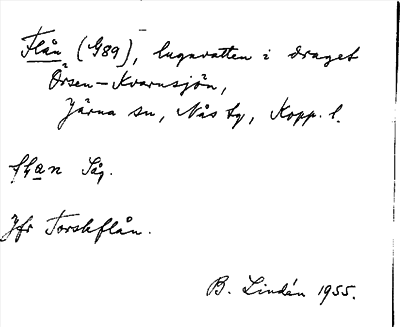 Flån (G89), lugnvatten i draget
Orsen-Kvarnsjön,
Järna sn, Nås tg, Kopp. l.
Såg.
Jfr Torskflån.
B. Lindén 1955.